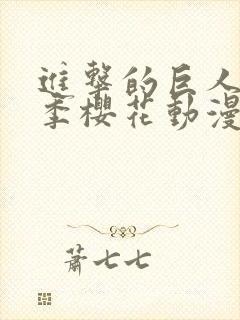 進擊的巨人
季櫻花動漫
蕭七七